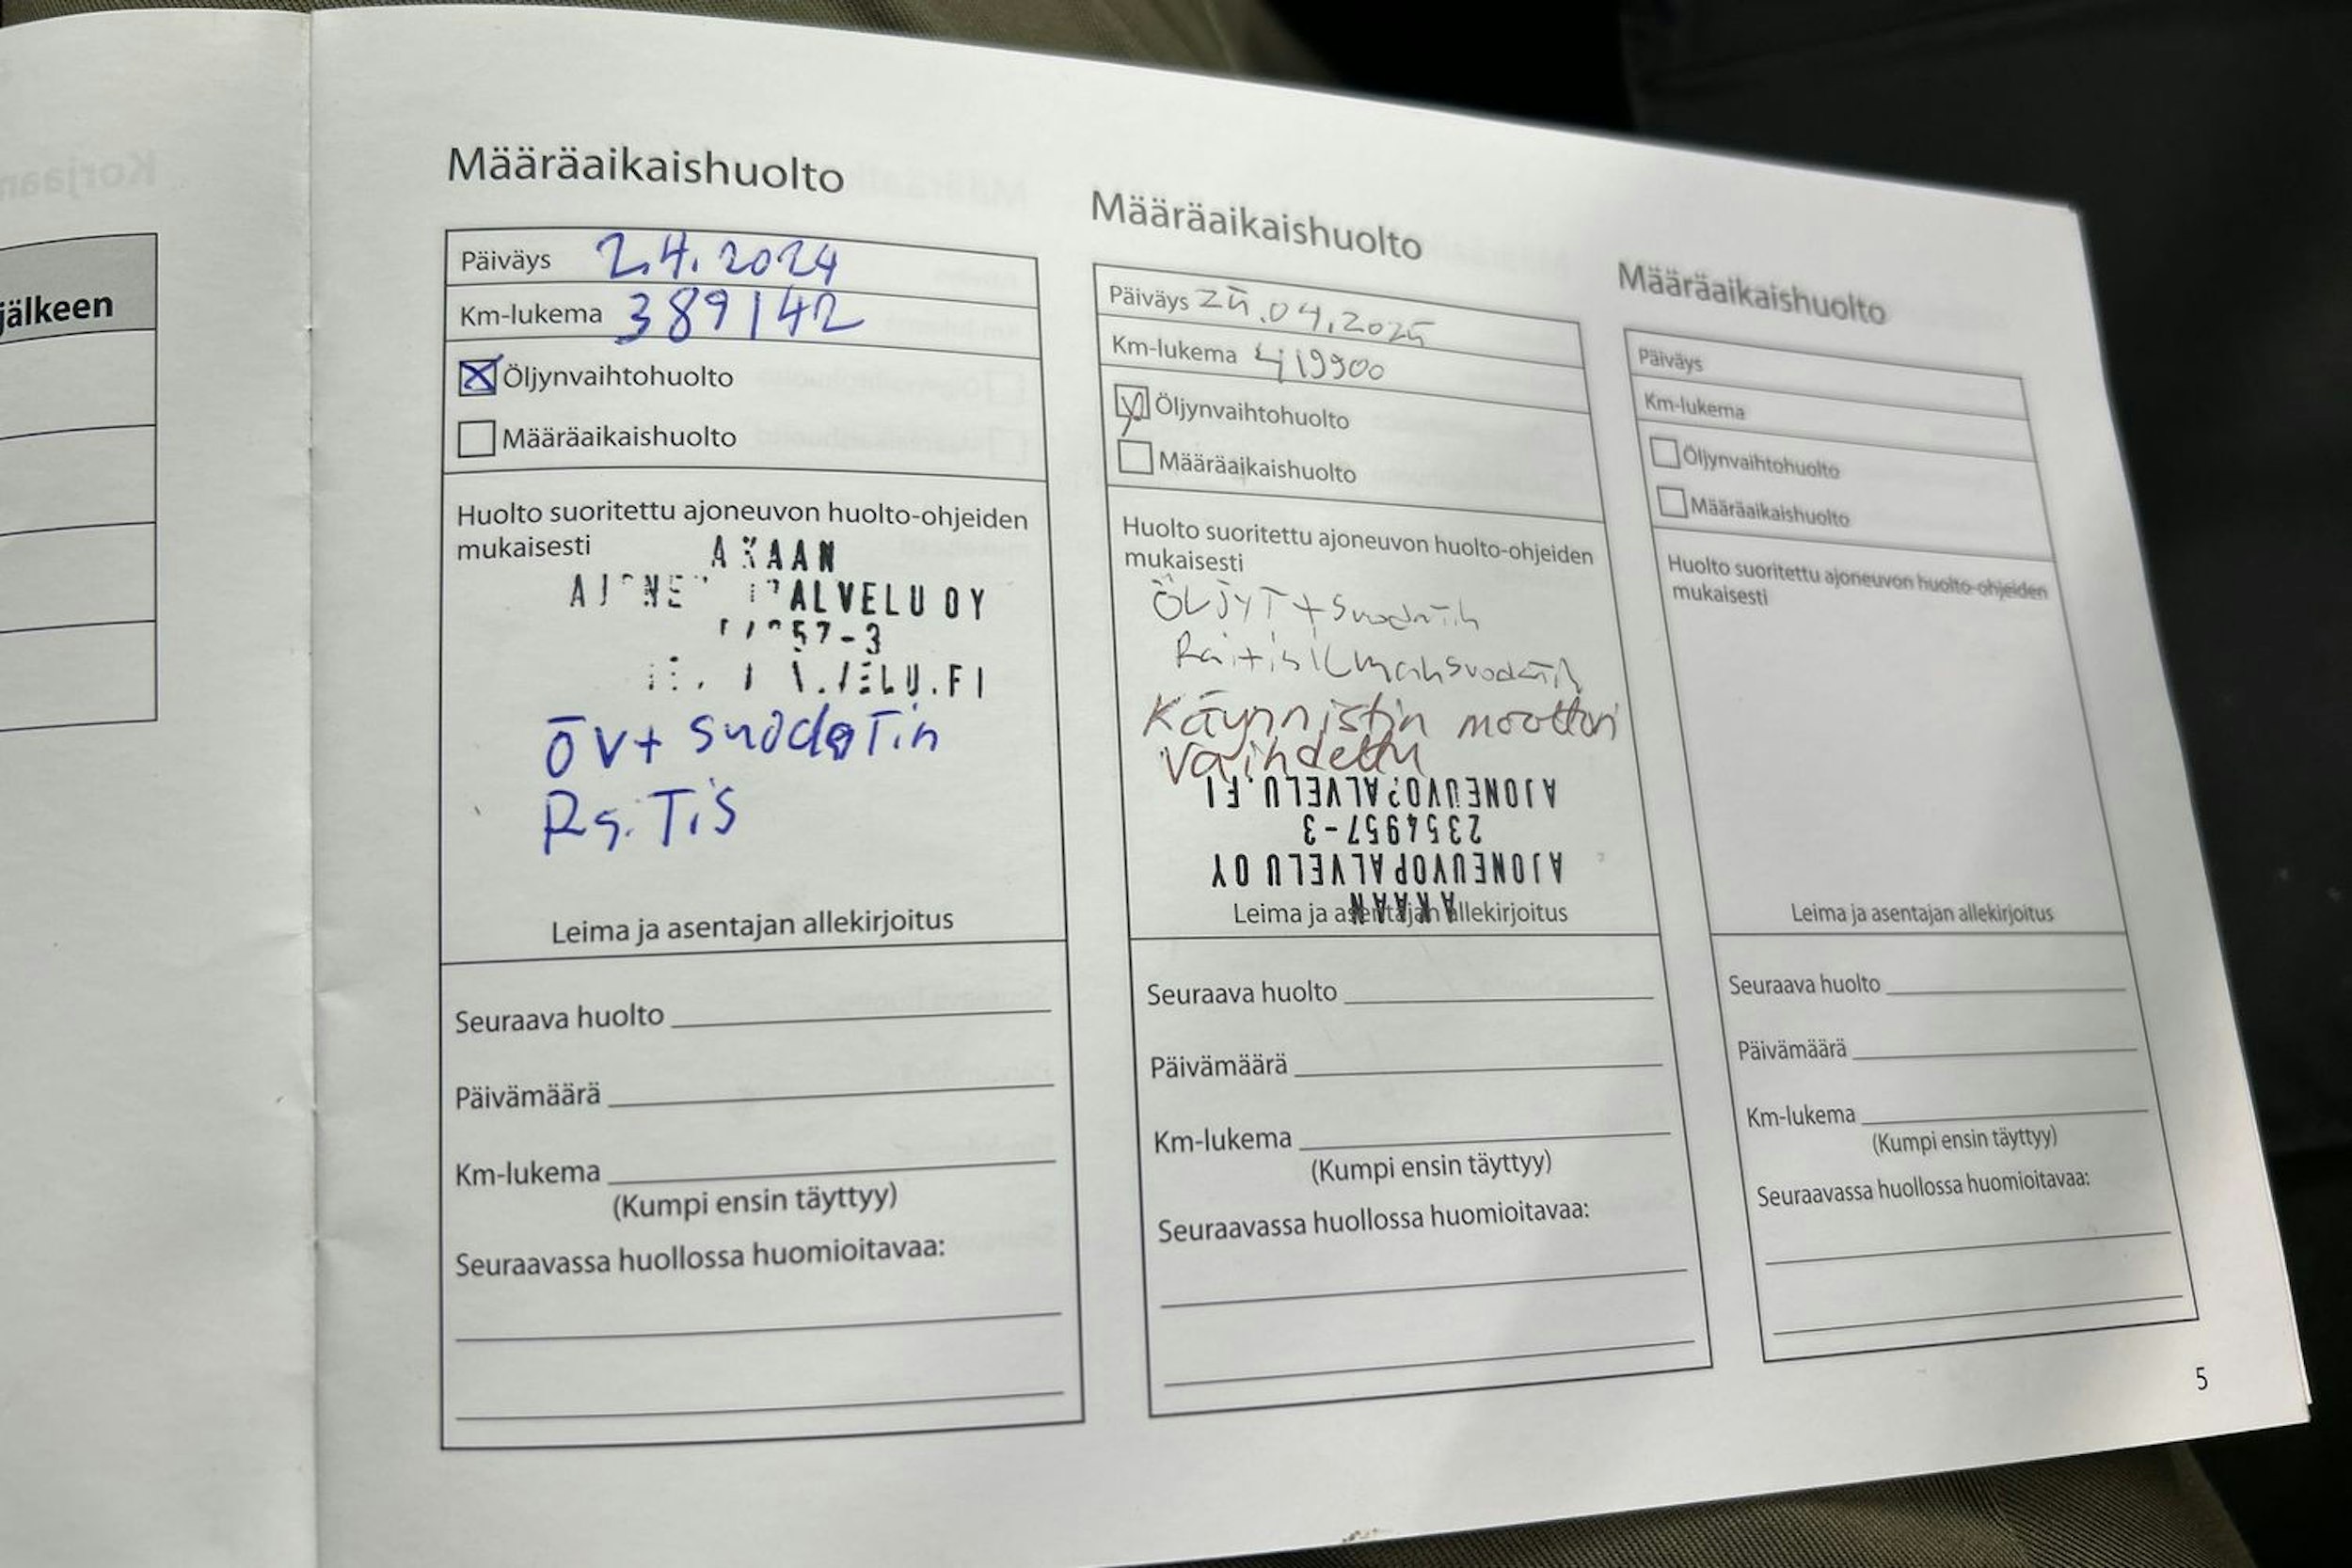 jälkeen
Määräaikaishuolto
Päiväys 2.4.2024
Km-lukema 389142
Öljynvaihtohuolto
Määräaikaishuolto
Huolto suoritettu ajoneuvon huolto-ohjeiden
mukaisesti
AKAAN
ALVELU OY
57-3
ELU.FI
ÖV+ suodatin
Rai.Tis
Leima ja asentajan allekirjoitus
Seuraava huolto
Päivämäärä
Km-lukema
(Kumpi ensin täyttyy)
Seuraavassa huollossa huomioitavaa:
Määräaikaishuolto
Päiväys 25.04.2025
Km-lukema 419900
Öljynvaihtohuolto
Määräaikaishuolto
Huolto suoritettu ajoneuvon huolto-ohjeiden
mukaisesti
ÖLJYT + Suodatin
Raitisilmansuodatin
Käynnistin moottori
vaihdettu
AKAAN
AJONEUVOPALVELU OY
2354957-3
AJONEUVOPALVELU.FI
Leima ja asentajan allekirjoitus
Seuraava huolto
Päivämäärä
Km-lukema
(Kumpi ensin täyttyy)
Seuraavassa huollossa huomioitavaa:
Määräaikaishuolto
Päiväys
Km-lukema
Öljynvaihtohuolto
Määräaikaishuolto
Huolto suoritettu ajoneuvon huolto-ohjeiden
mukaisesti
Leima ja asentajan allekirjoitus
Seuraava huolto
Päivämäärä
Km-lukema
(Kumpi ensin täyttyy)
Seuraavassa huollossa huomioitavaa:
5